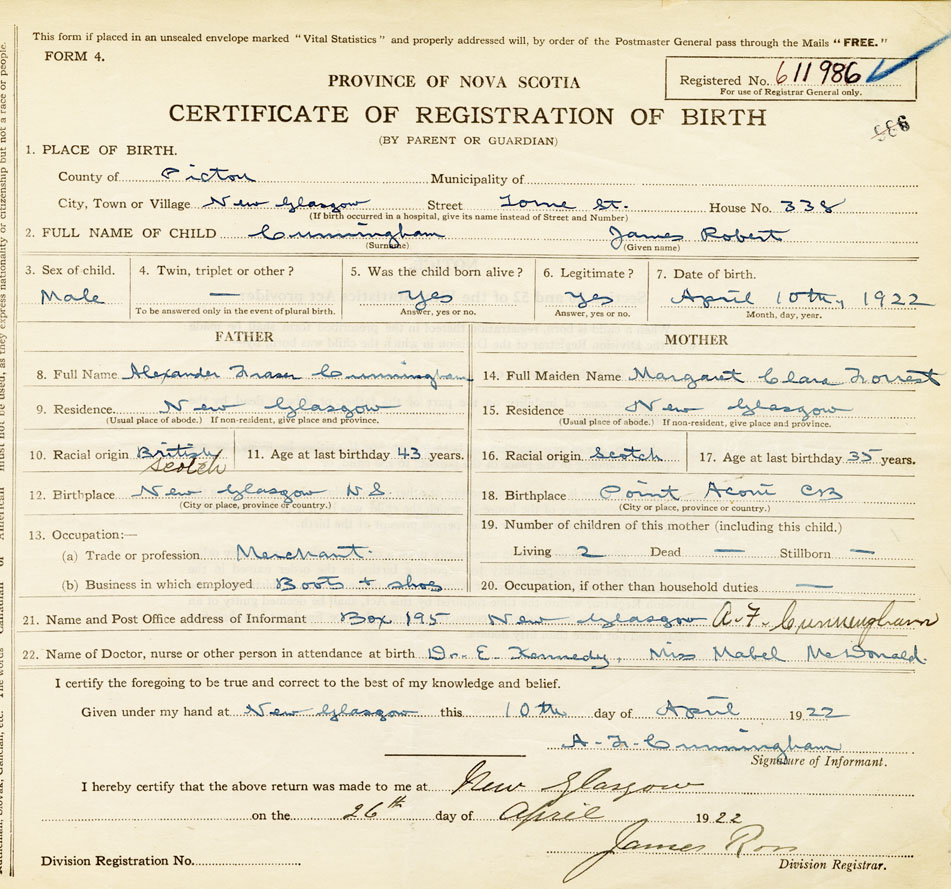 This form if placed in an unsealed envelope marked "Vital Statistics" and properly addressed will, by order of the Postmaster General pass through the Mails "FREE."
FORM 4.
PROVINCE OF NOVA SCOTIA
Registered No. 611986
For use of Registrar General only.
CERTIFICATE OF REGISTRATION OF BIRTH
(BY PARENT OR GUARDIAN)
1. PLACE OF BIRTH.
County of Pictou Municipality of
City, Town or Village New Glasgow Street Lorne St. House No. 338
(If birth occurred in a hospital, give its name instead of Street and Number)
2. FULL NAME OF CHILD Cunningham James Robert
(Surname) (Given name)
3. Sex of child. 4. Twin, triplet or other? 5. Was the child born alive? 6. Legitimate? 7. Date of birth.
Male — Yes Yes April 10th, 1922
To be answered only in the event of plural birth. Answer, yes or no. Answer, yes or no. Month, day, year.
FATHER MOTHER
8. Full Name Alexander Fraser Cunningham 14. Full Maiden Name Margaret Clara Forrest
9. Residence New Glasgow 15. Residence New Glasgow
(Usual place of abode.) If non-resident, give place and province. (Usual place of abode.) If non-resident, give place and province.
10. Racial origin British 11. Age at last birthday 43 years. 16. Racial origin Scotch 17. Age at last birthday 35 years.
Scotch
12. Birthplace New Glasgow NS 18. Birthplace Point Aconi CB
(City or place, province or country.) (City or place, province or country.)
13. Occupation:— 19. Number of children of this mother (including this child.)
(a) Trade or profession Merchant. Living 2 Dead — Stillborn —
(b) Business in which employed Boots + shoes 20. Occupation, if other than household duties —
21. Name and Post Office address of Informant Box 195 New Glasgow A. F. Cunningham
22. Name of Doctor, nurse or other person in attendance at birth Dr. E. Kennedy, Miss Mabel McDonald.
I certify the foregoing to be true and correct to the best of my knowledge and belief.
Given under my hand at New Glasgow this 10th day of April 1922
A. F. Cunningham
Signature of Informant.
I hereby certify that the above return was made to me at New Glasgow
on the 26th day of April 1922
James Ross
Division Registration No. Division Registrar.